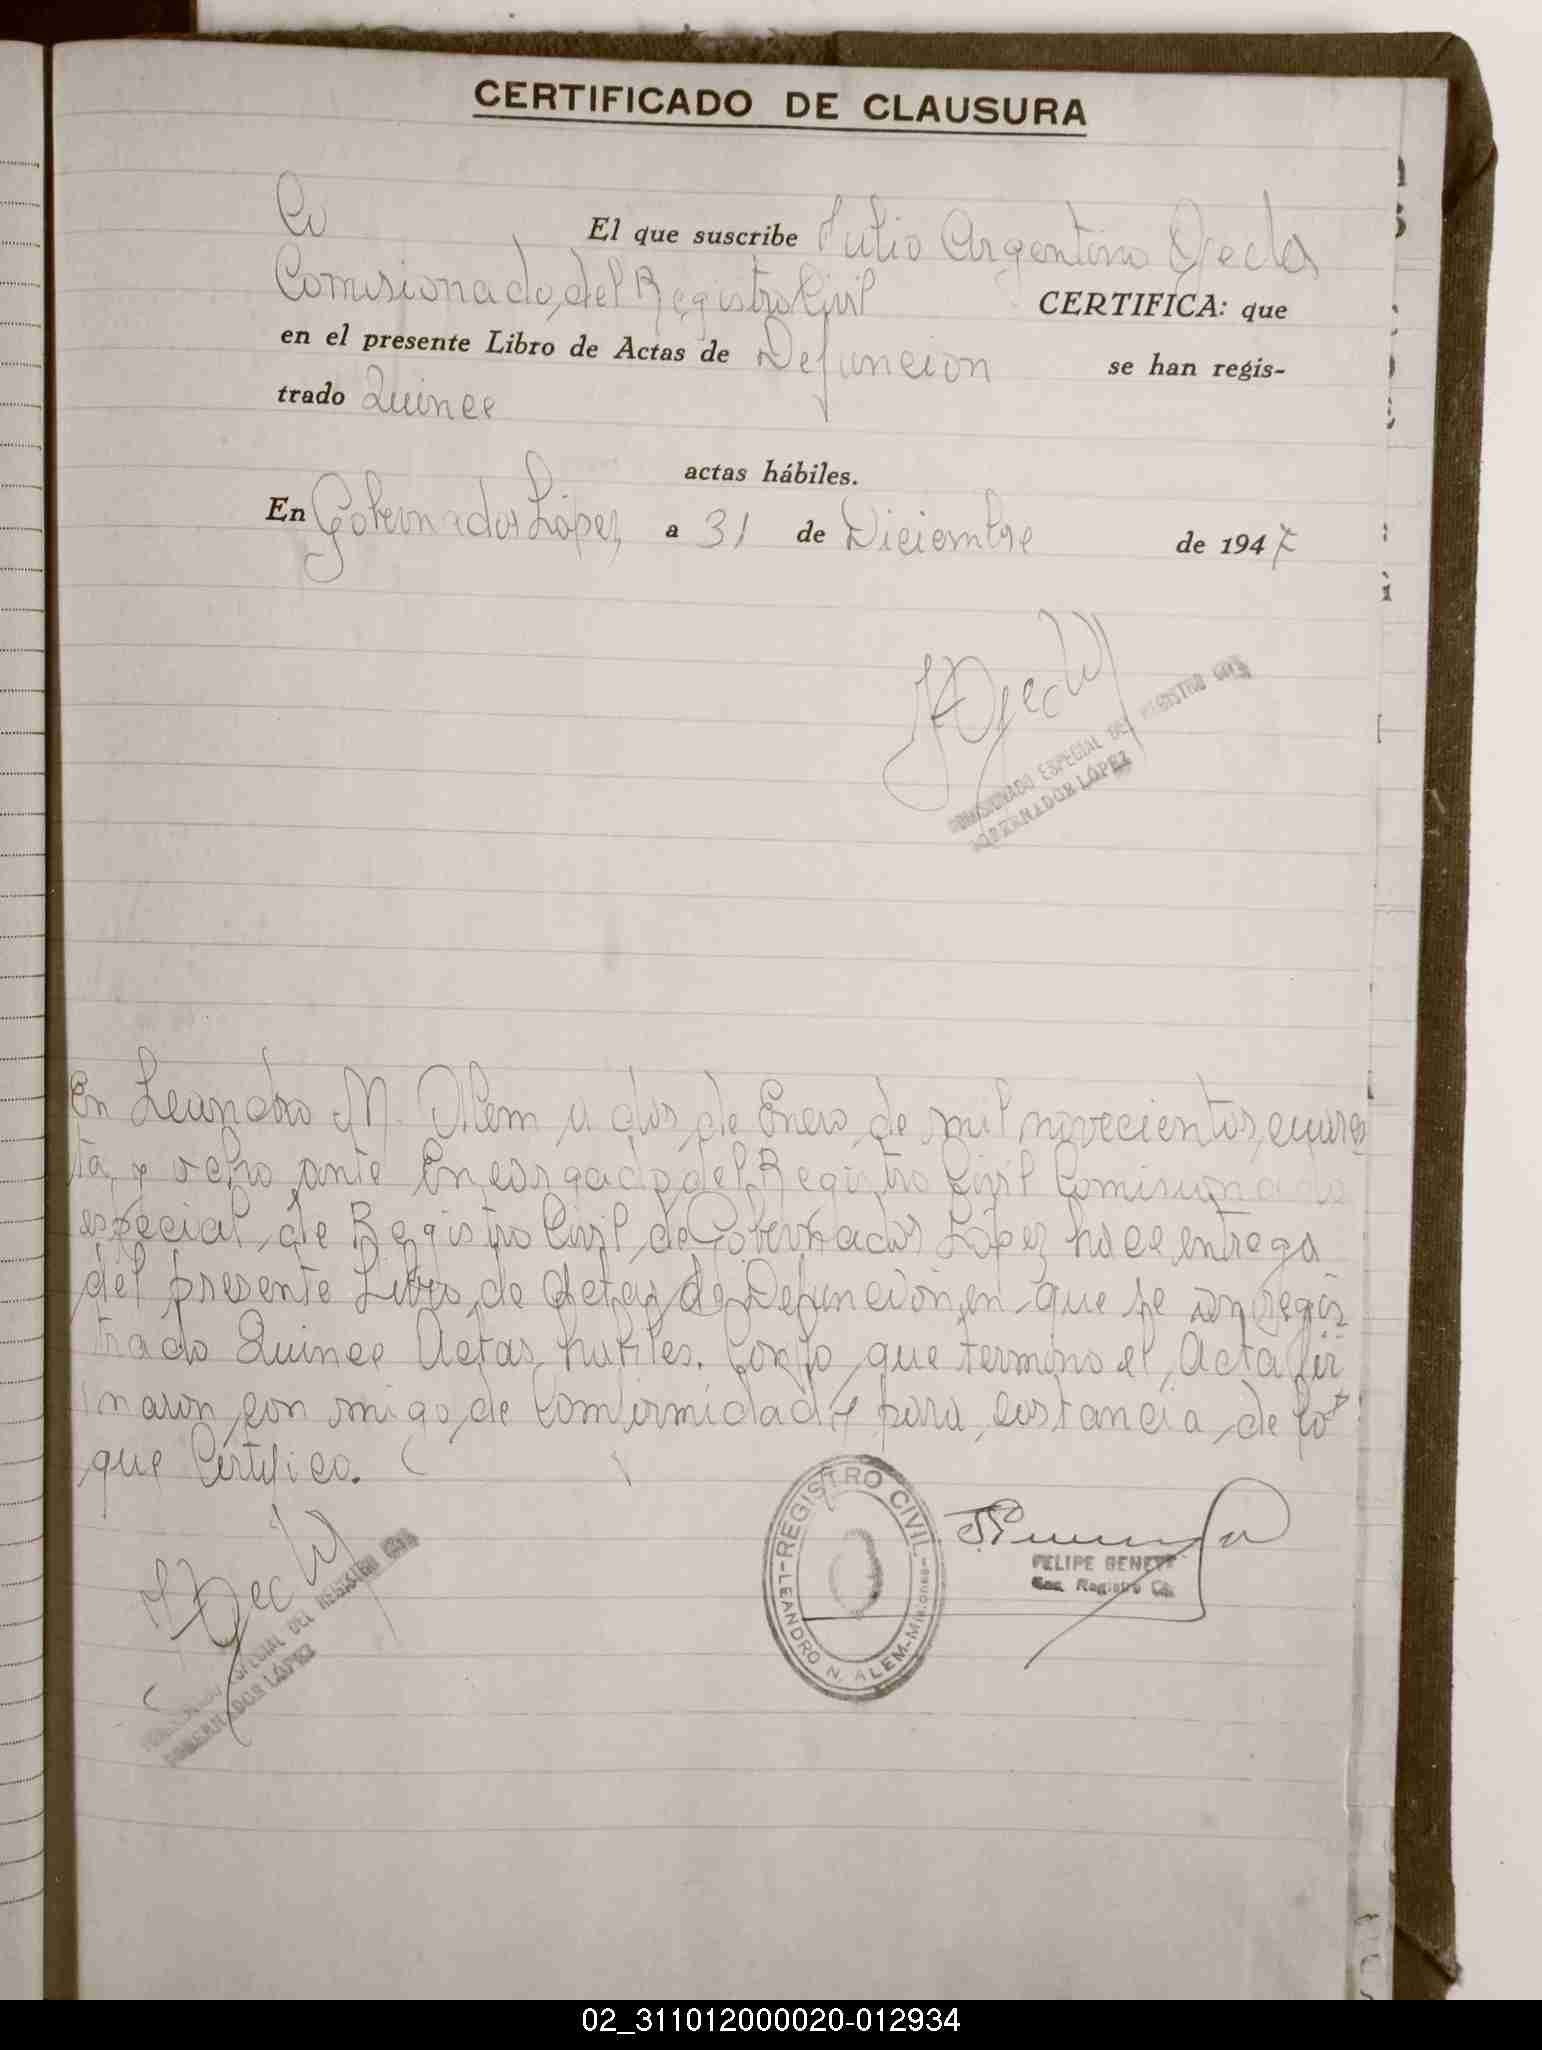 CERTIFICADO DE CLAUSURA
El que suscribe Julio Argentino Ojeda
Comisionado, del Registro Civil CERTIFICA: que
en el presente Libro de Actas de Defuncion se han regis-
trado Quince
actas hábiles.
En Gobernador López a 31 de Diciembre de 1947
JAOjeda
COMISIONADO ESPECIAL DEL REGISTRO CIVIL
GOBERNADOR LÓPEZ
En Leandro N. Alem a dos, de Enero, de mil novecientos, cuaren
ta, y ocho, ante Encargado, del, Registro Civil Comisionado
especial, de Registro Civil, de Gobernador López hace entrega
del presente Libro, de Actas, de Defuncion, en que se an regis
trado Quince Actas, habiles. Con lo, que termino el, Acta fir
maron, con migo, de Comformidad, y para, costancia, de lo
que Certifico.
JAOjeda
ESPECIAL DEL REGISTRO CIVIL
GOBERNADOR LÓPEZ
REGISTRO CIVIL
LEANDRO N. ALEM-Misiones
FELIPE BENEYT
Enc. Registro Civ.
02_311012000020-012934